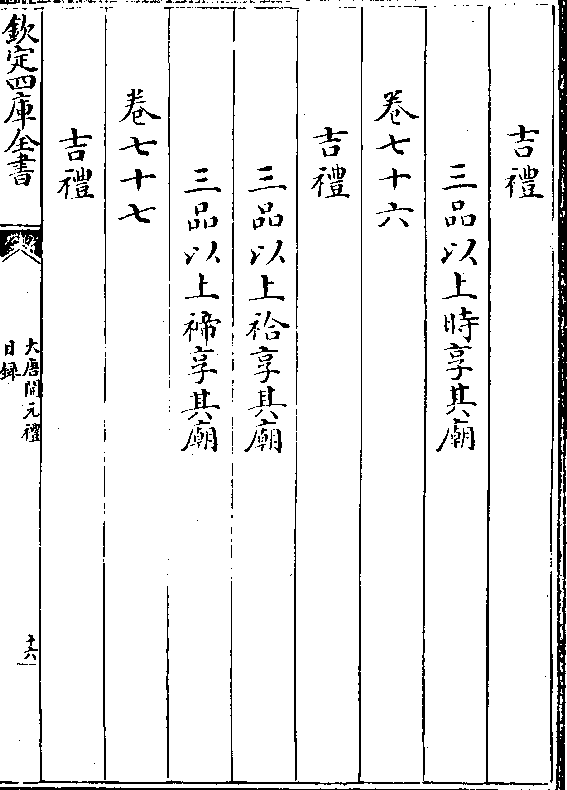 吉禮
三品以上時享其廟
卷七十六
吉禮
三品以上祫享其廟
三品以上禘享其廟
卷七十七
吉禮
欽定四庫全書
大唐開元禮
目錄
十六